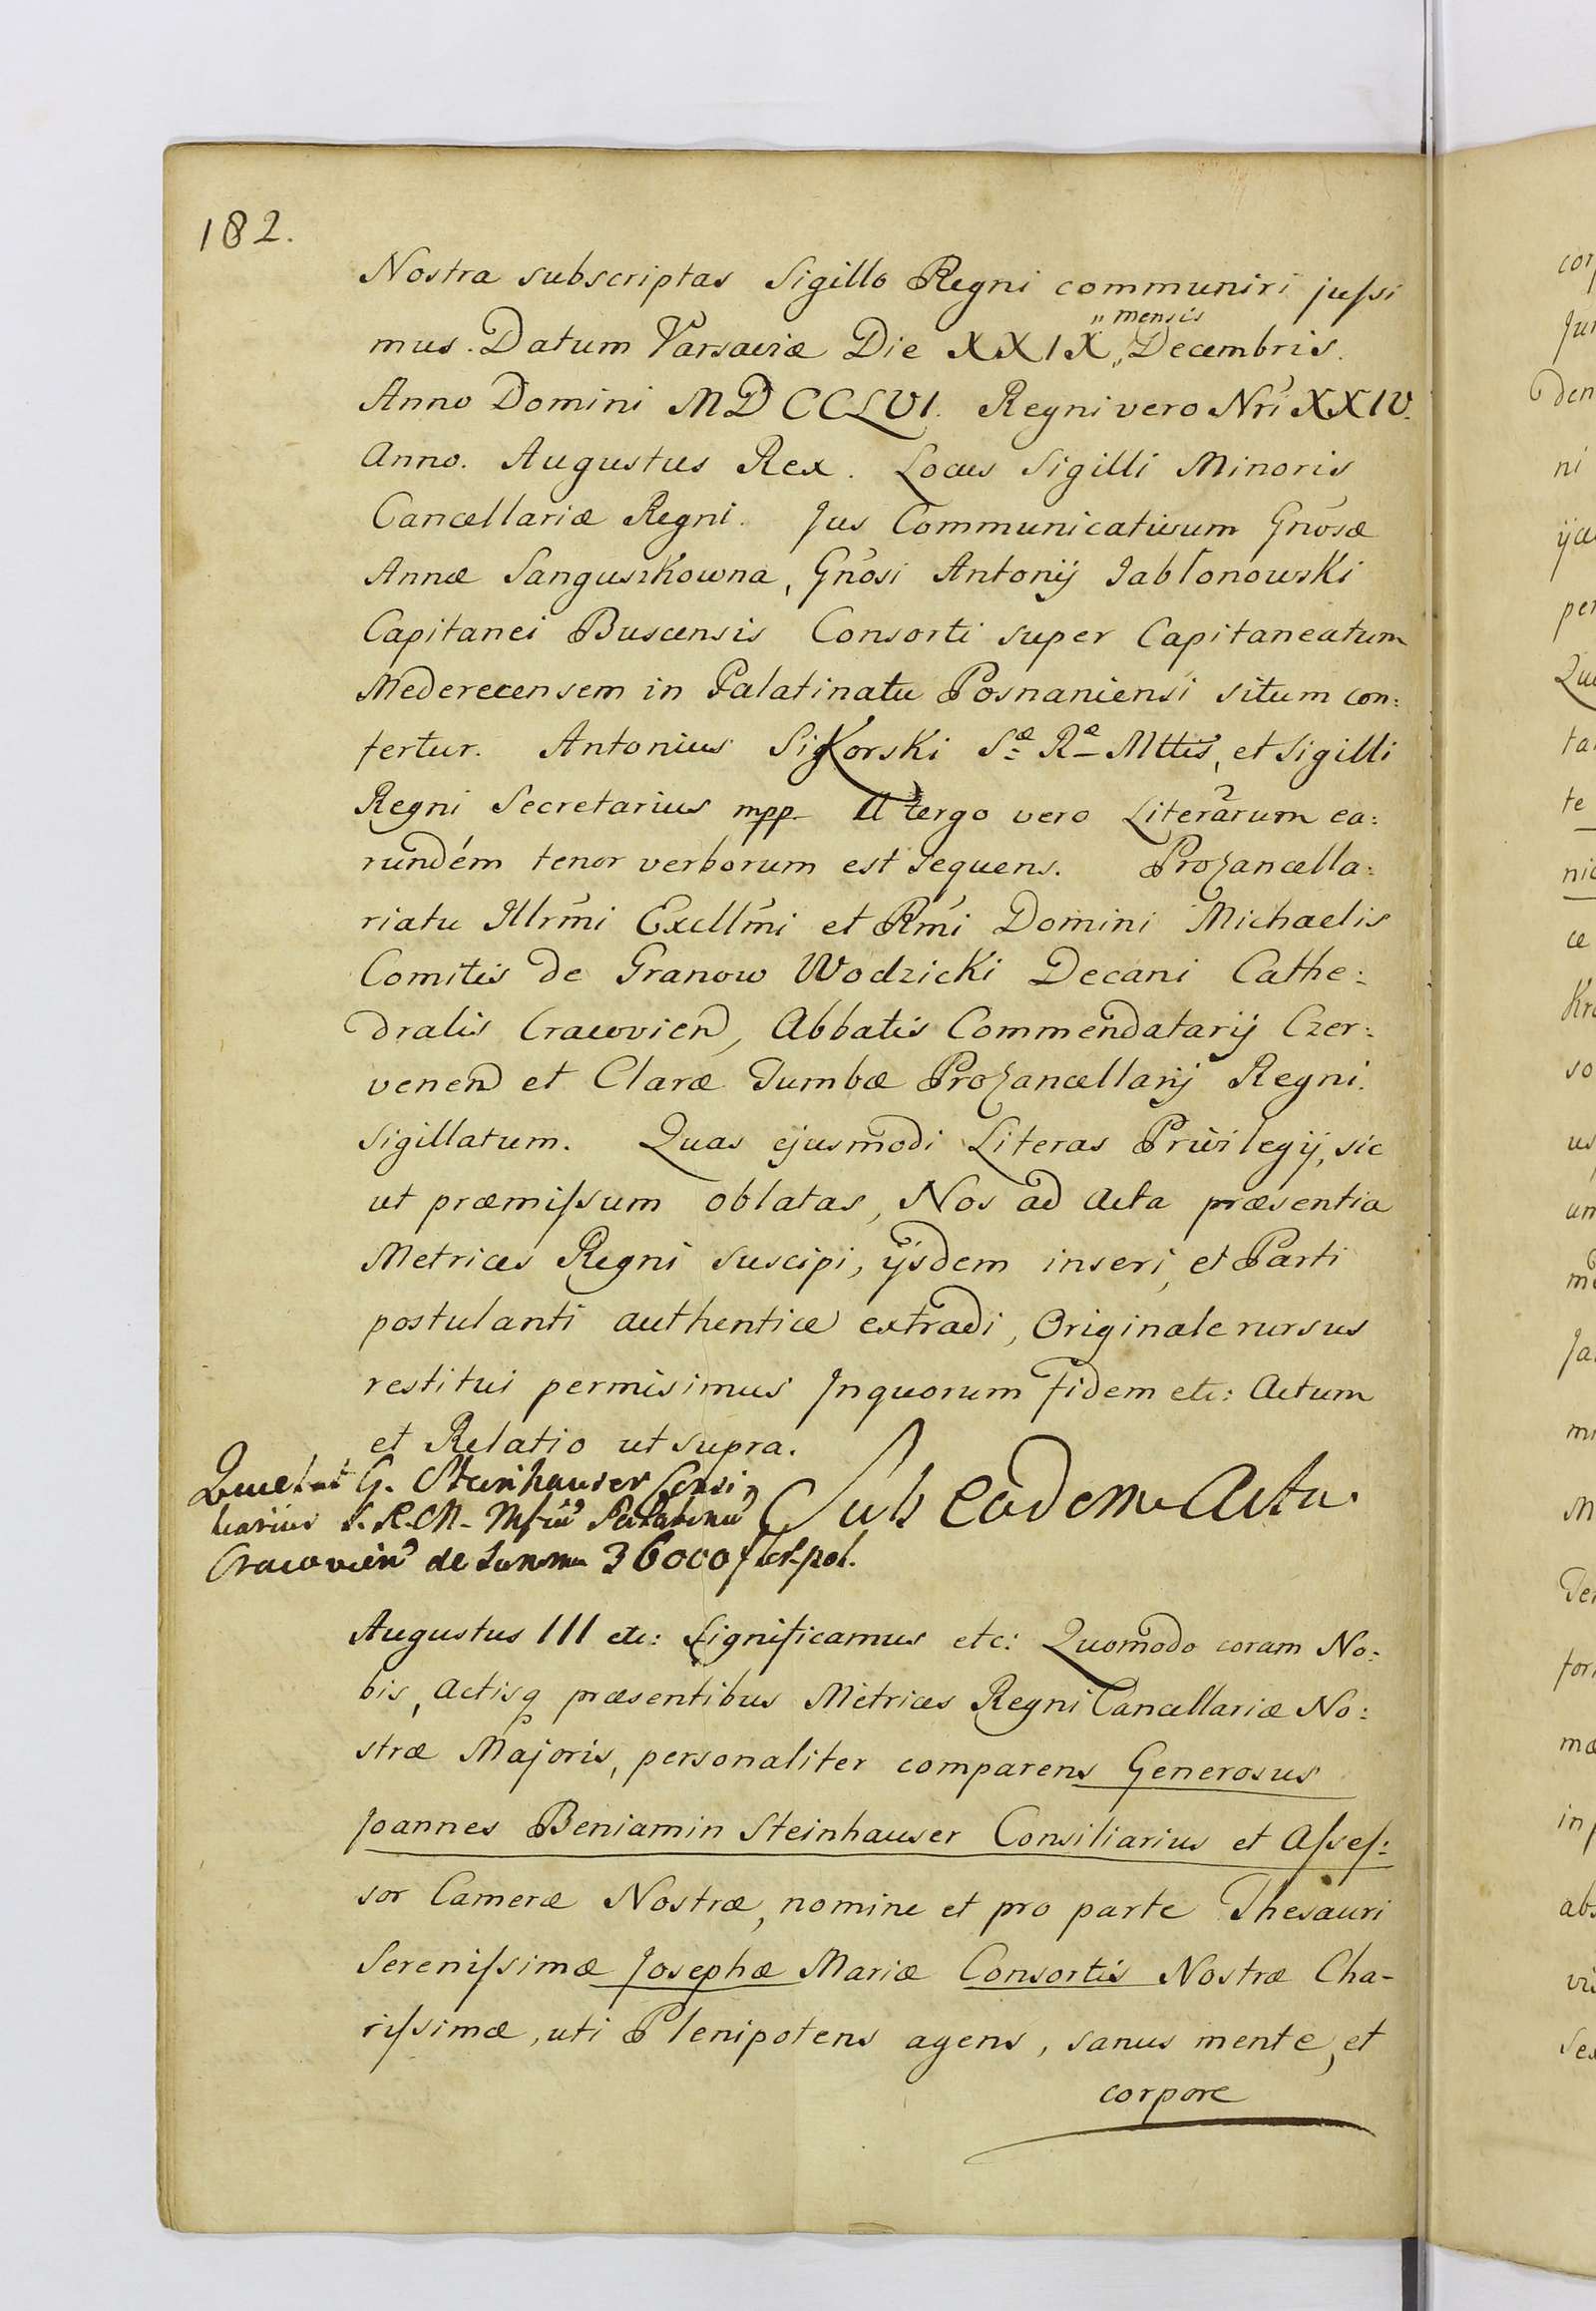 182.
Nostra subscriptas Sigillo Regni communiri jussi
mus. Datum Varsaviæ Die XXIX „mensis„ Decembris.
Anno Domini MDCCLVI. Regni vero Nri XXIV.
Anno. Augustus Rex. Locus Sigilli Minoris
Cancellariæ Regni. Jus Communicativum Gnosæ
Annæ Sanguszkowna, Gnosi Antonij Jabłonowski
Capitanei Buscensis Consorti super Capitaneatum
Mederecensem in Palatinatu Posnaniensi situm con:
fertur. Antonius Sikorski Sæ Ræ Mttis, et Sigilli
Regni Secretarius mpp. A tergo vero Literarum ea:
rundem tenor verborum est sequens. Procancella:
riatu Illrmi Excllmi et Rmi Domini Michaelis
Comitis de Granow Wodzicki Decani Cathe:
dralis Cracovien, Abbatis Commendatarij Czer:
venen et Claræ Tumbæ Procancellarij Regni.
sigillatum. Quas ejusmodi Literas Privilegij, sic
ut præmissum oblatas, Nos ad Acta præsentia
Metrices Regni suscipi, ijsdem inseri, et Parti
postulanti authentice extradi, Originale rursus
restitui permisimus Inquorum fidem etc: Actum
et Relatio ut supra.
G. Steinhauser Consi
liarius S. R. M. Palatinu
Cracovien de Summa 36000 flor. pol.
Sub eodem Actu.
Augustus III etc: Significamus etc: Quomodo coram No:
bis, Actisq præsentibus Metrices Regni Cancellariæ No:
stræ Majoris, personaliter comparens Generosus
Joannes Beniamin Steinhauser Consiliarius et Asses:
sor Cameræ Nostræ, nomine et pro parte Thesauri
Serenissimæ Josephæ Mariæ Consortis Nostræ Cha-
rissimæ, uti Plenipotens agens, sanus mente, et
corpore